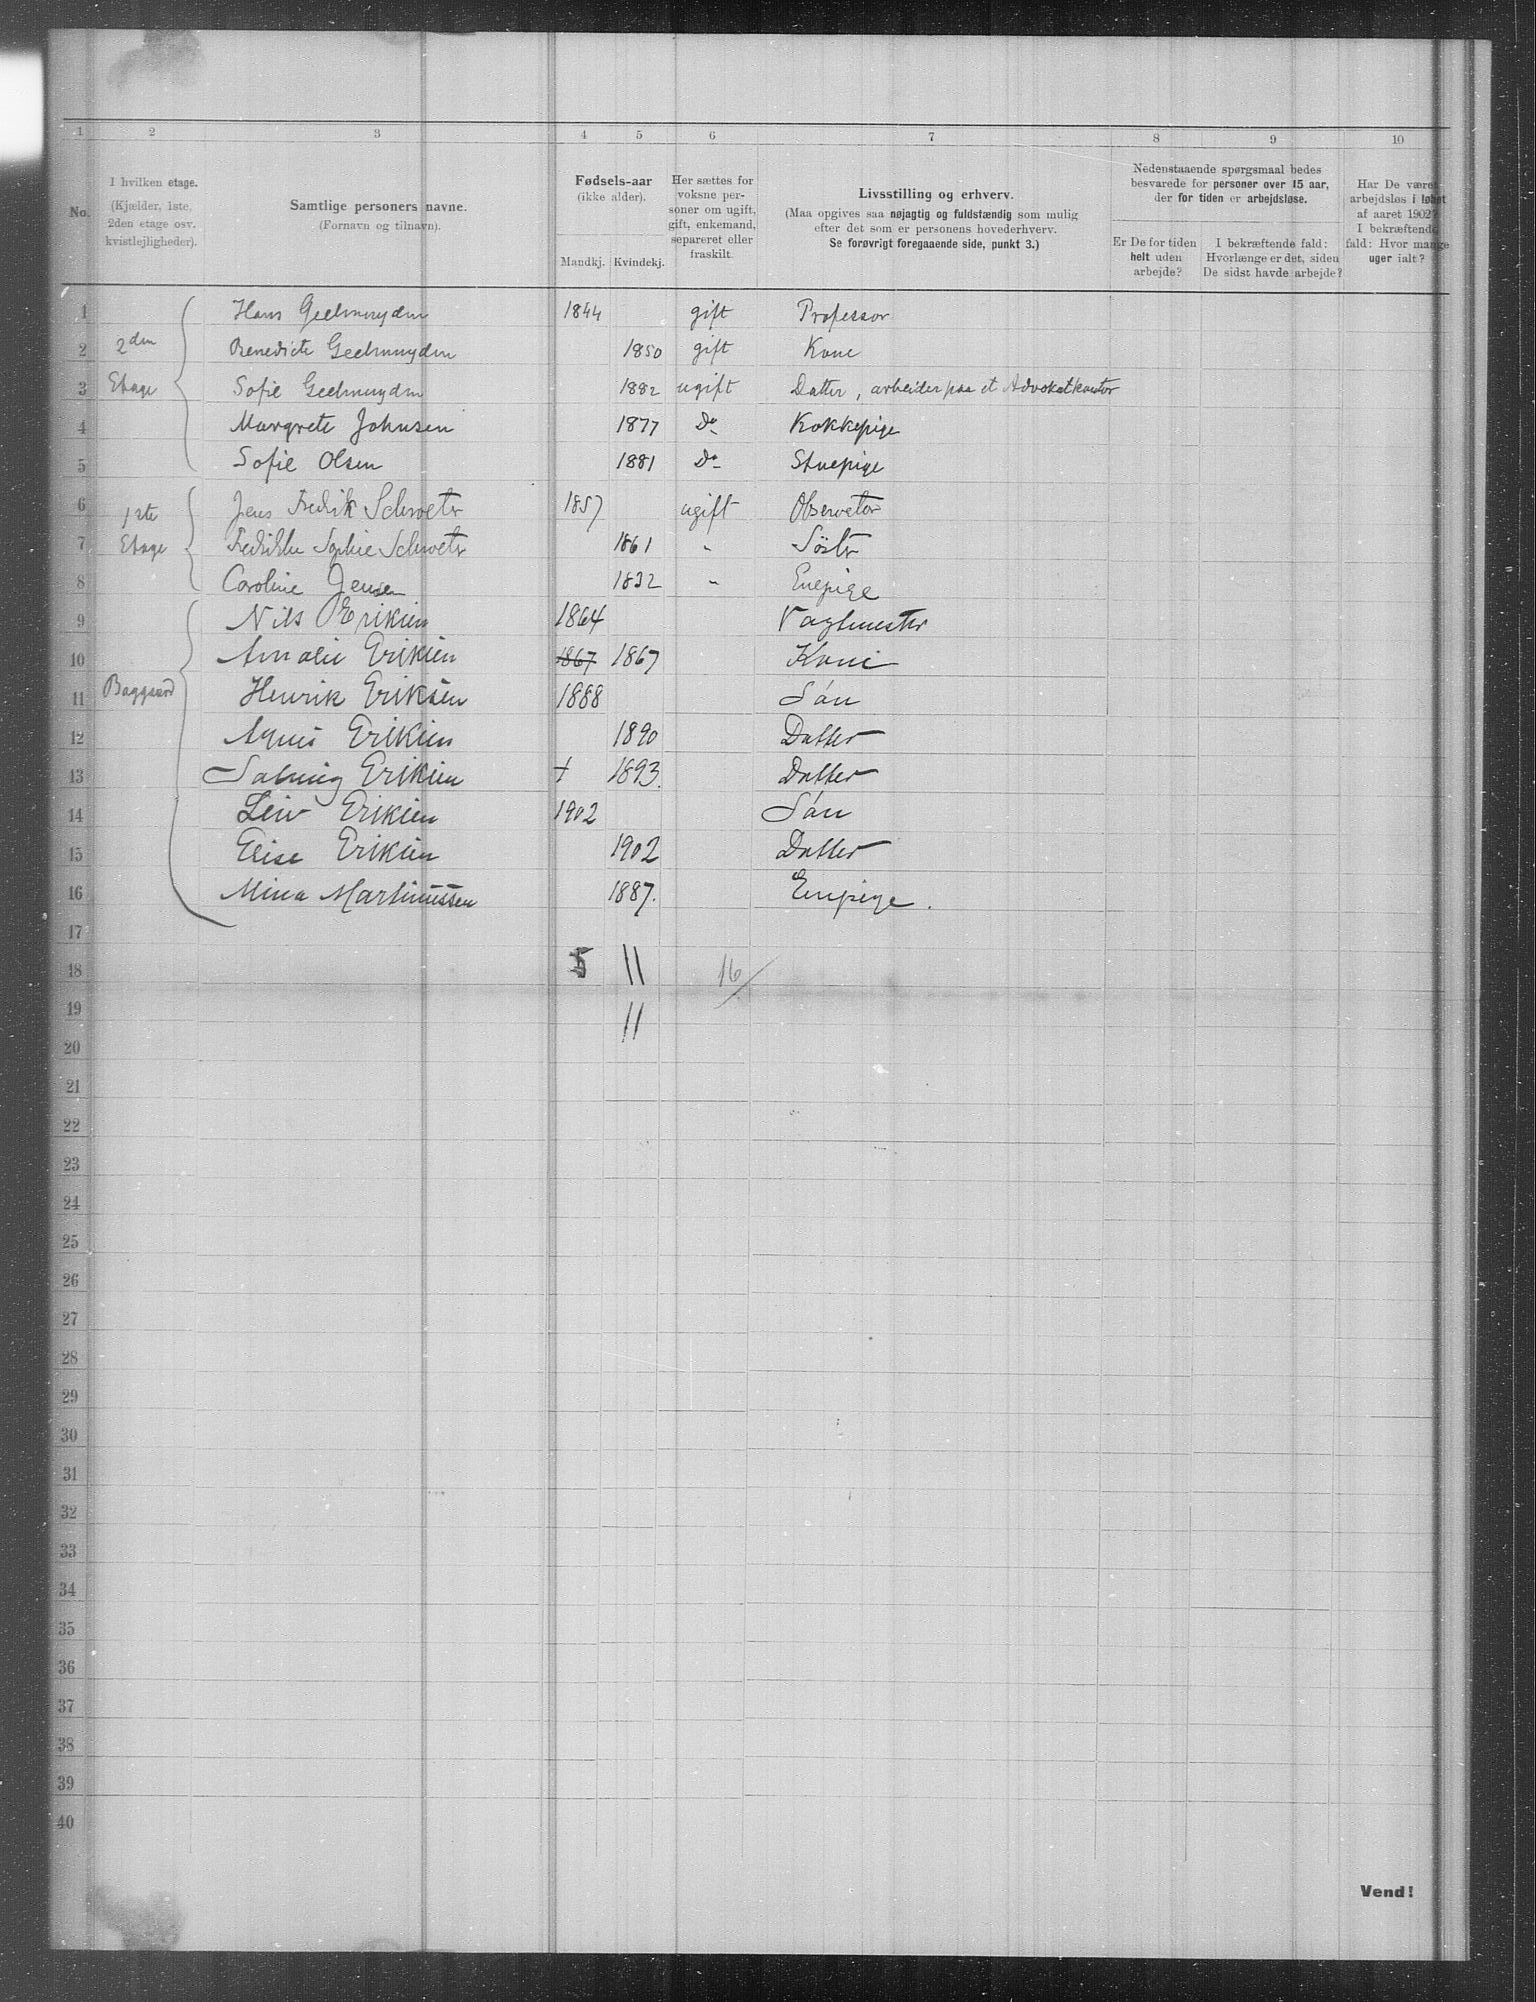 1 2 3 4 5 6 7 8 9 10
No.
I hvilken etage.
(Kjælder, 1ste,
2den etage osv.
kvistlejligheder).
Samtlige personers navne.
(Fornavn og tilnavn).
Fødsels-aar
(ikke alder).
Mandkj. Kvindekj.
Her sættes for
voksne per-
soner om ugift,
gift, enkemand,
separeret eller
fraskilt.
Livsstilling og erhverv.
(Maa opgives saa nøjagtig og fuldstændig som mulig
efter det som er personens hovederhverv.
Se forøvrigt foregaaende side, punkt 3.)
Nedenstaaende spørgsmaal bedes
besvarede for personer over 15 aar,
der for tiden er arbejdsløse.
Er De for tiden
helt uden
arbejde?
I bekræftende fald:
Hvorlænge er det, siden
De sidst havde arbejde?
Har De været
arbejdsløs i løbet
af aaret 1902?
I bekræftende
fald: Hvor mange
uger ialt?
1 Hans Geelmuyden 1844 gift Professor
2 2den Benedicte Geelmuyden 1850 gift Kone
3 Etage Sofie Geelmuyden 1882 ugift Datter, arbeider paa et Advokatkontor
4 Margrete Johnsen 1877 Do Kokkepige
5 Sofie Olsen 1881 Do Stuepige
6 1ste Jens Fredrik Schroeter 1857 ugift Observator
7 Etage Fredrikke Sophie Schroeter 1861 " Søster
8 Caroline Jensen 1832 " Enepige
9 Nils Eriksen 1864 Vagtmester
10 Amalie Eriksen 1867 1867 Kone
11 Baggaard Henrik Eriksen 1888 Søn
12 Agnes Eriksen 1890 Datter
13 Solveig Eriksen + 1893. Datter
14 Leiv Eriksen 1902 Søn
15 Elise Eriksen 1902 Datter
16 Mina Martinussen 1887. Enepige.
17
18 5 11 16/
19 11
20
21
22
23
24
25
26
27
28
29
30
31
32
33
34
35
36
37
38
39
40
Vend!